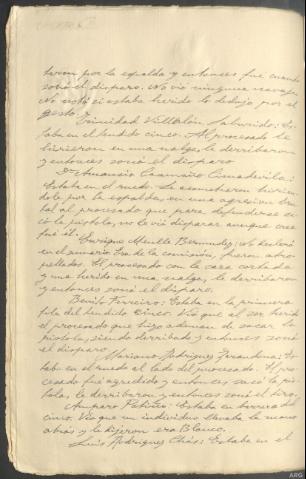 baron por la espalda y entonces fue cuando
sonó el disparo. No vio ninguna navaja
No notó si estaba herido lo dedujo por el
gesto.
Trinidad Villalón, la herido: Es-
taba en el tendido cinco. Al procesado le
hirieron en una nalga, le derribaron
y entonces sonó el disparo
D. Amancio Caamaño Cimadevila:
Estaba en el ruedo. Le acometieron hirien-
dole por la espalda, en una agresion bru-
tal al procesado que para defenderse sa-
có la pistola, no le vió disparar aunque cree
fué él.
Enrique Meulle Bermudez: No declaró
en el sumario. Era de la comisión, fueron atro-
pellados. Al procesado con la cara cortada
y una herida en una nalga, le derribaron
y entonces sonó el disparo.
Benito Ferreiro: Estaba en la primera
fila del tendido cinco. Vió que al ser herido
el procesado que hizo ademan de sacar la
pistola, siendo derribado y entonces sonó
el disparo
Mariano Rodriguez: Esta-
ba en el ruedo al lado del procesado. El pro-
cesado fué agredido y entonces sacó la pis-
tola, le derribaron y entonces sonó el tiro.
Amparo Patiño: Estaba en barrera del
cinco. Vió que un individuo llevaba la mano
atrás y le dijeron era Blanco.
Luis Rodriguez: Estaba en el